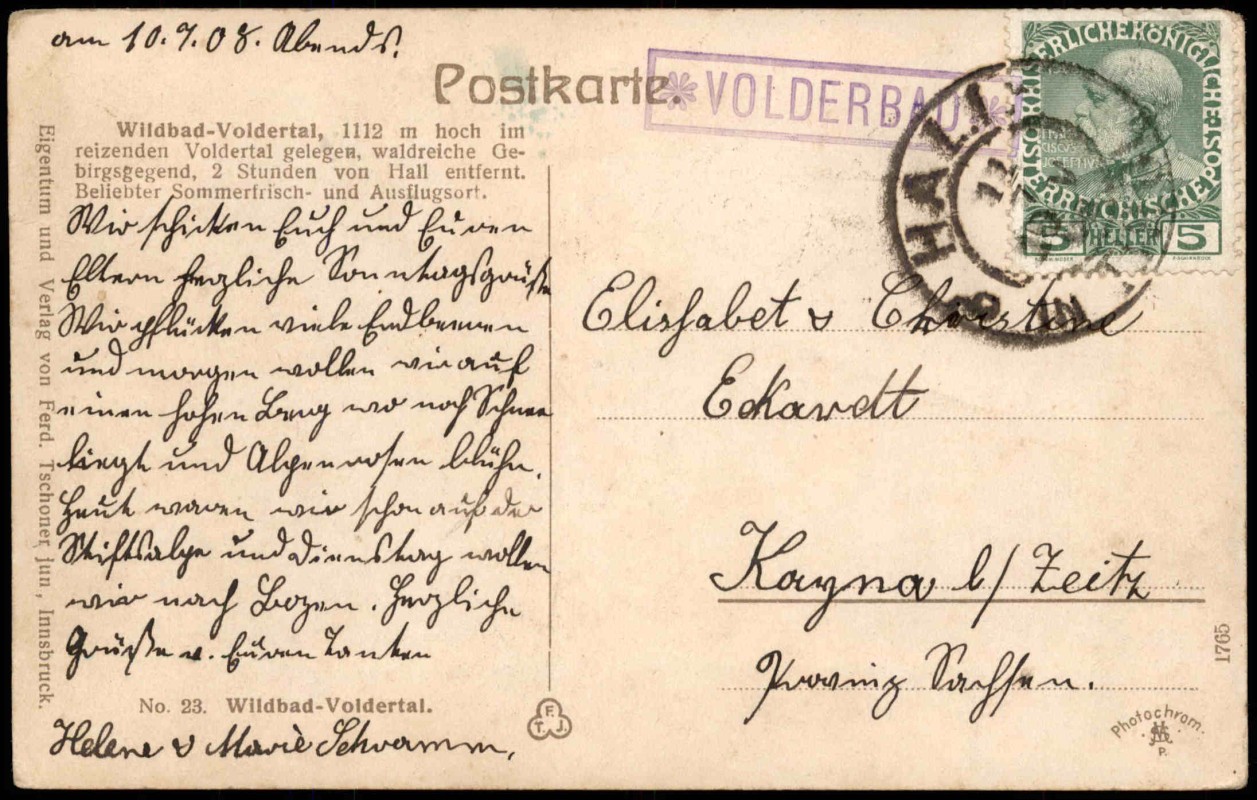 am 10.7.08. Abends.
Postkarte.
* VOLDERBAD *
Wildbad-Voldertal, 1112 m hoch im
reizenden Voldertal gelegen, waldreiche Ge-
birgsgegend, 2 Stunden von Hall entfernt.
Beliebter Sommerfrisch- und Ausflugsort.
Wir schicken Euch und Euren
Eltern herzliche Sonntagsgrüße
Wir pflücken viele Erdbeeren
und morgen wollen wir auf
einen hohen Berg wo noch Schnee
liegt und Alpenrosen blühn.
Heut waren wir schon auf der
Stiftsalpe und Dienstag wollen
wir nach Bozen. Herzliche
Grüße v. Euren Tanten
No. 23. Wildbad-Voldertal.
Helene & Marie Schramm.
Eigentum und Verlag von Ferd. Tschoner jun, Innsbruck.
F.
T. J.
KAISERLICHE KÖNIGLICHE ÖSTERREICHISCHE POST
5 HELLER 5
HALL IN
Elisabet & Christine
Eckardt
Kayna b/ Zeitz
Provinz Sachsen.
1765
Photochrom.
P.